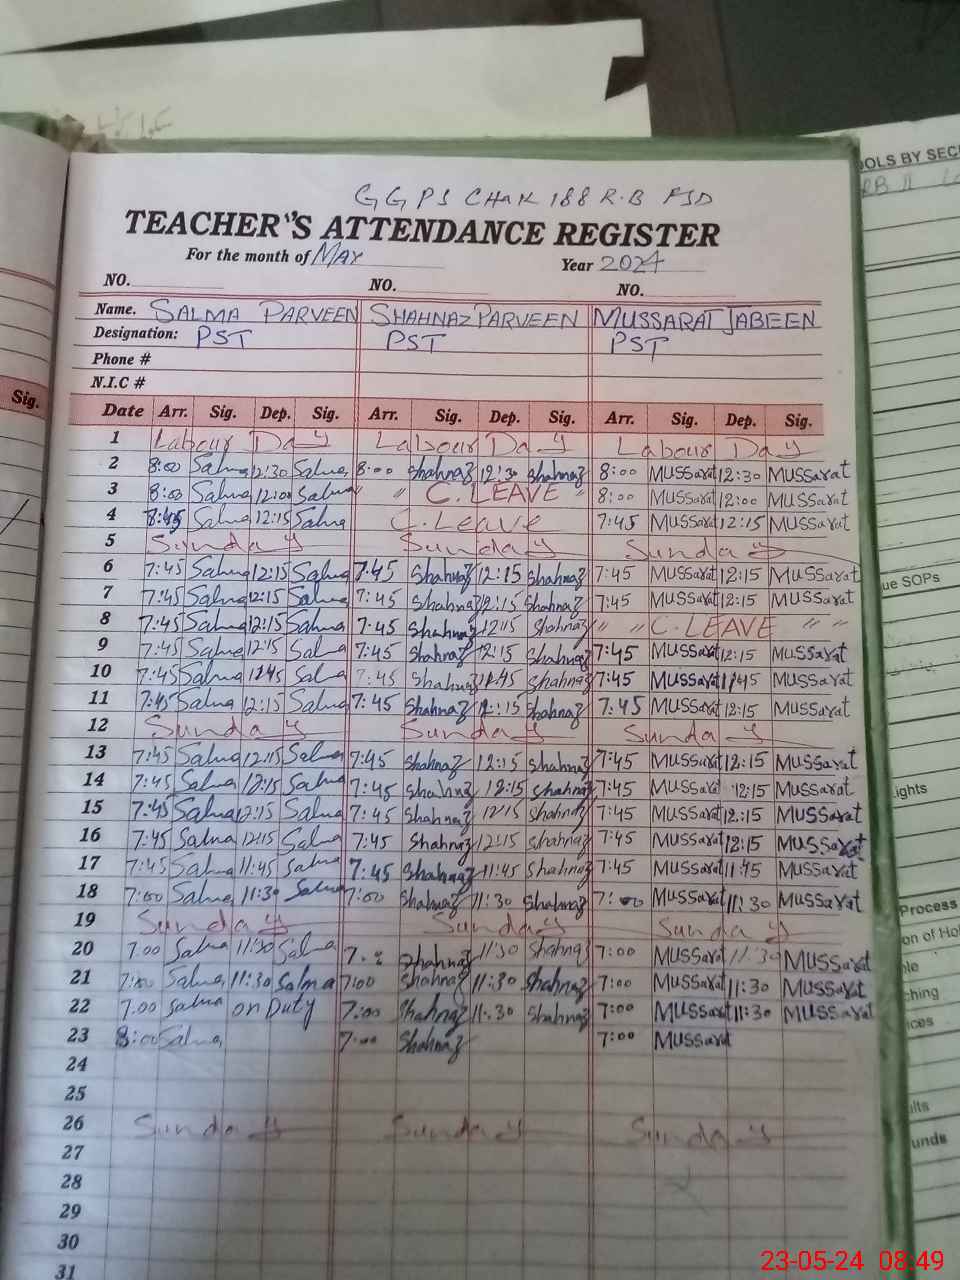 OOLS BY SEC
RB
G G P S CHAK 188 R.B FSD
TEACHER'S ATTENDANCE REGISTER
For the month of MAY Year 2024
NO. NO. NO.
Name. SALMA PARVEEN SHAHNAZ PARVEEN MUSSARAT JABEEN
Designation: PST PST PST
Phone #
N.I.C #
Sig.
Date Arr. Sig. Dep. Sig. Arr. Sig. Dep. Sig. Arr. Sig. Dep. Sig.
1 Labour Day Labour Day Labour Day
2 8:00 Salma 12:30 Salma 8:00 Shahnaz 12:30 Shahnaz 8:00 Mussarat 12:30 Mussarat
3 8:00 Salma 12:00 Salma " " C. LEAVE " 8:00 Mussarat 12:00 Mussarat
4 8:45 Salma 12:15 Salma C. Leave 7:45 Mussarat 12:15 Mussarat
5 Sunday Sunday Sunday
6 7:45 Salma 12:15 Salma 7:45 Shahnaz 12:15 Shahnaz 7:45 Mussarat 12:15 Mussarat
7 7:45 Salma 12:15 Salma 7:45 Shahnaz 12:15 Shahnaz 7:45 Mussarat 12:15 Mussarat
8 7:45 Salma 12:15 Salma 7:45 Shahnaz 12:15 Shahnaz " " C. LEAVE " "
9 7:45 Salma 12:15 Salma 7:45 Shahnaz 12:15 Shahnaz 7:45 Mussarat 12:15 Mussarat
10 7:45 Salma 11:45 Salma 7:45 Shahnaz 11:45 Shahnaz 7:45 Mussarat 11:45 Mussarat
11 7:45 Salma 12:15 Salma 7:45 Shahnaz 12:15 Shahnaz 7:45 Mussarat 12:15 Mussarat
12 Sunday Sunday Sunday
13 7:45 Salma 12:15 Salma 7:45 Shahnaz 12:15 Shahnaz 7:45 Mussarat 12:15 Mussarat
14 7:45 Salma 12:15 Salma 7:45 Shahnaz 12:15 Shahnaz 7:45 Mussarat 12:15 Mussarat
15 7:45 Salma 12:15 Salma 7:45 Shahnaz 12:15 Shahnaz 7:45 Mussarat 12:15 Mussarat
16 7:45 Salma 12:15 Salma 7:45 Shahnaz 12:15 Shahnaz 7:45 Mussarat 12:15 Mussarat
17 7:45 Salma 11:45 Salma 7:45 Shahnaz 11:45 Shahnaz 7:45 Mussarat 11:45 Mussarat
18 7:00 Salma 11:30 Salma 7:00 Shahnaz 11:30 Shahnaz 7:00 Mussarat 11:30 Mussarat
19 Sunday Sunday Sunday
20 7.00 Salma 11:30 Salma Shahnaz 11:30 Shahnaz 7:00 Mussarat 11:30 Mussarat
21 7:00 Salma 11:30 Salma 7:00 Shahnaz 11:30 Shahnaz 7:00 Mussarat 11:30 Mussarat
22 7.00 Salma on Duty 7:00 Shahnaz 11:30 Shahnaz 7:00 Mussarat 11:30 Mussarat
23 8:00 Salma 7:00 Shahnaz 7:00 Mussarat
24
25
26 Sunday Sunday Sunday
27
28
29
30
31
ue SOPs
ights
Process
on of Hol
ple
ching
ices
ults
unds
23-05-24 08:49